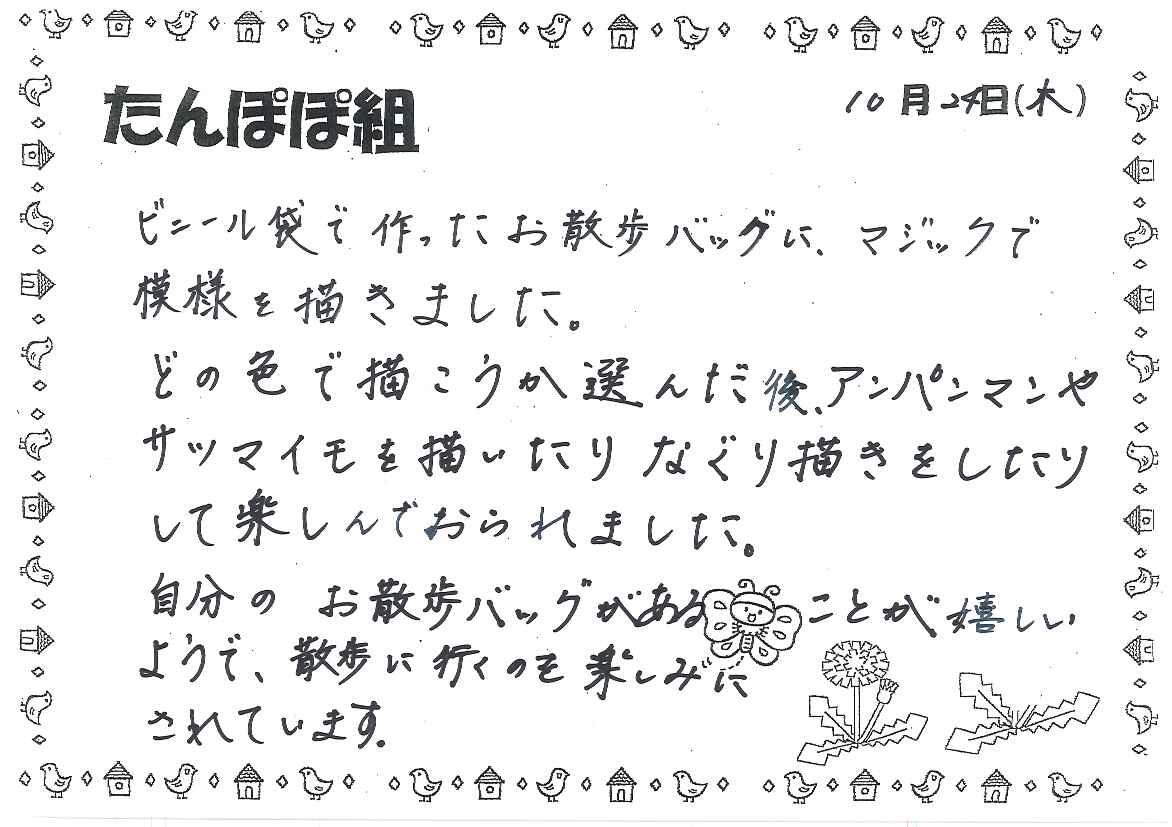 たんぽぽ組
10月24日(木)
ビニール袋で作ったお散歩バッグに、マジックで
模様を描きました。
どの色で描こうか選んだ後、アンパンマンや
サツマイモを描いたりなぐり描きをしたり
して楽しんでおられました。
自分のお散歩バッグがあることが嬉しい
ようで、散歩に行くのを楽しみに
されています。